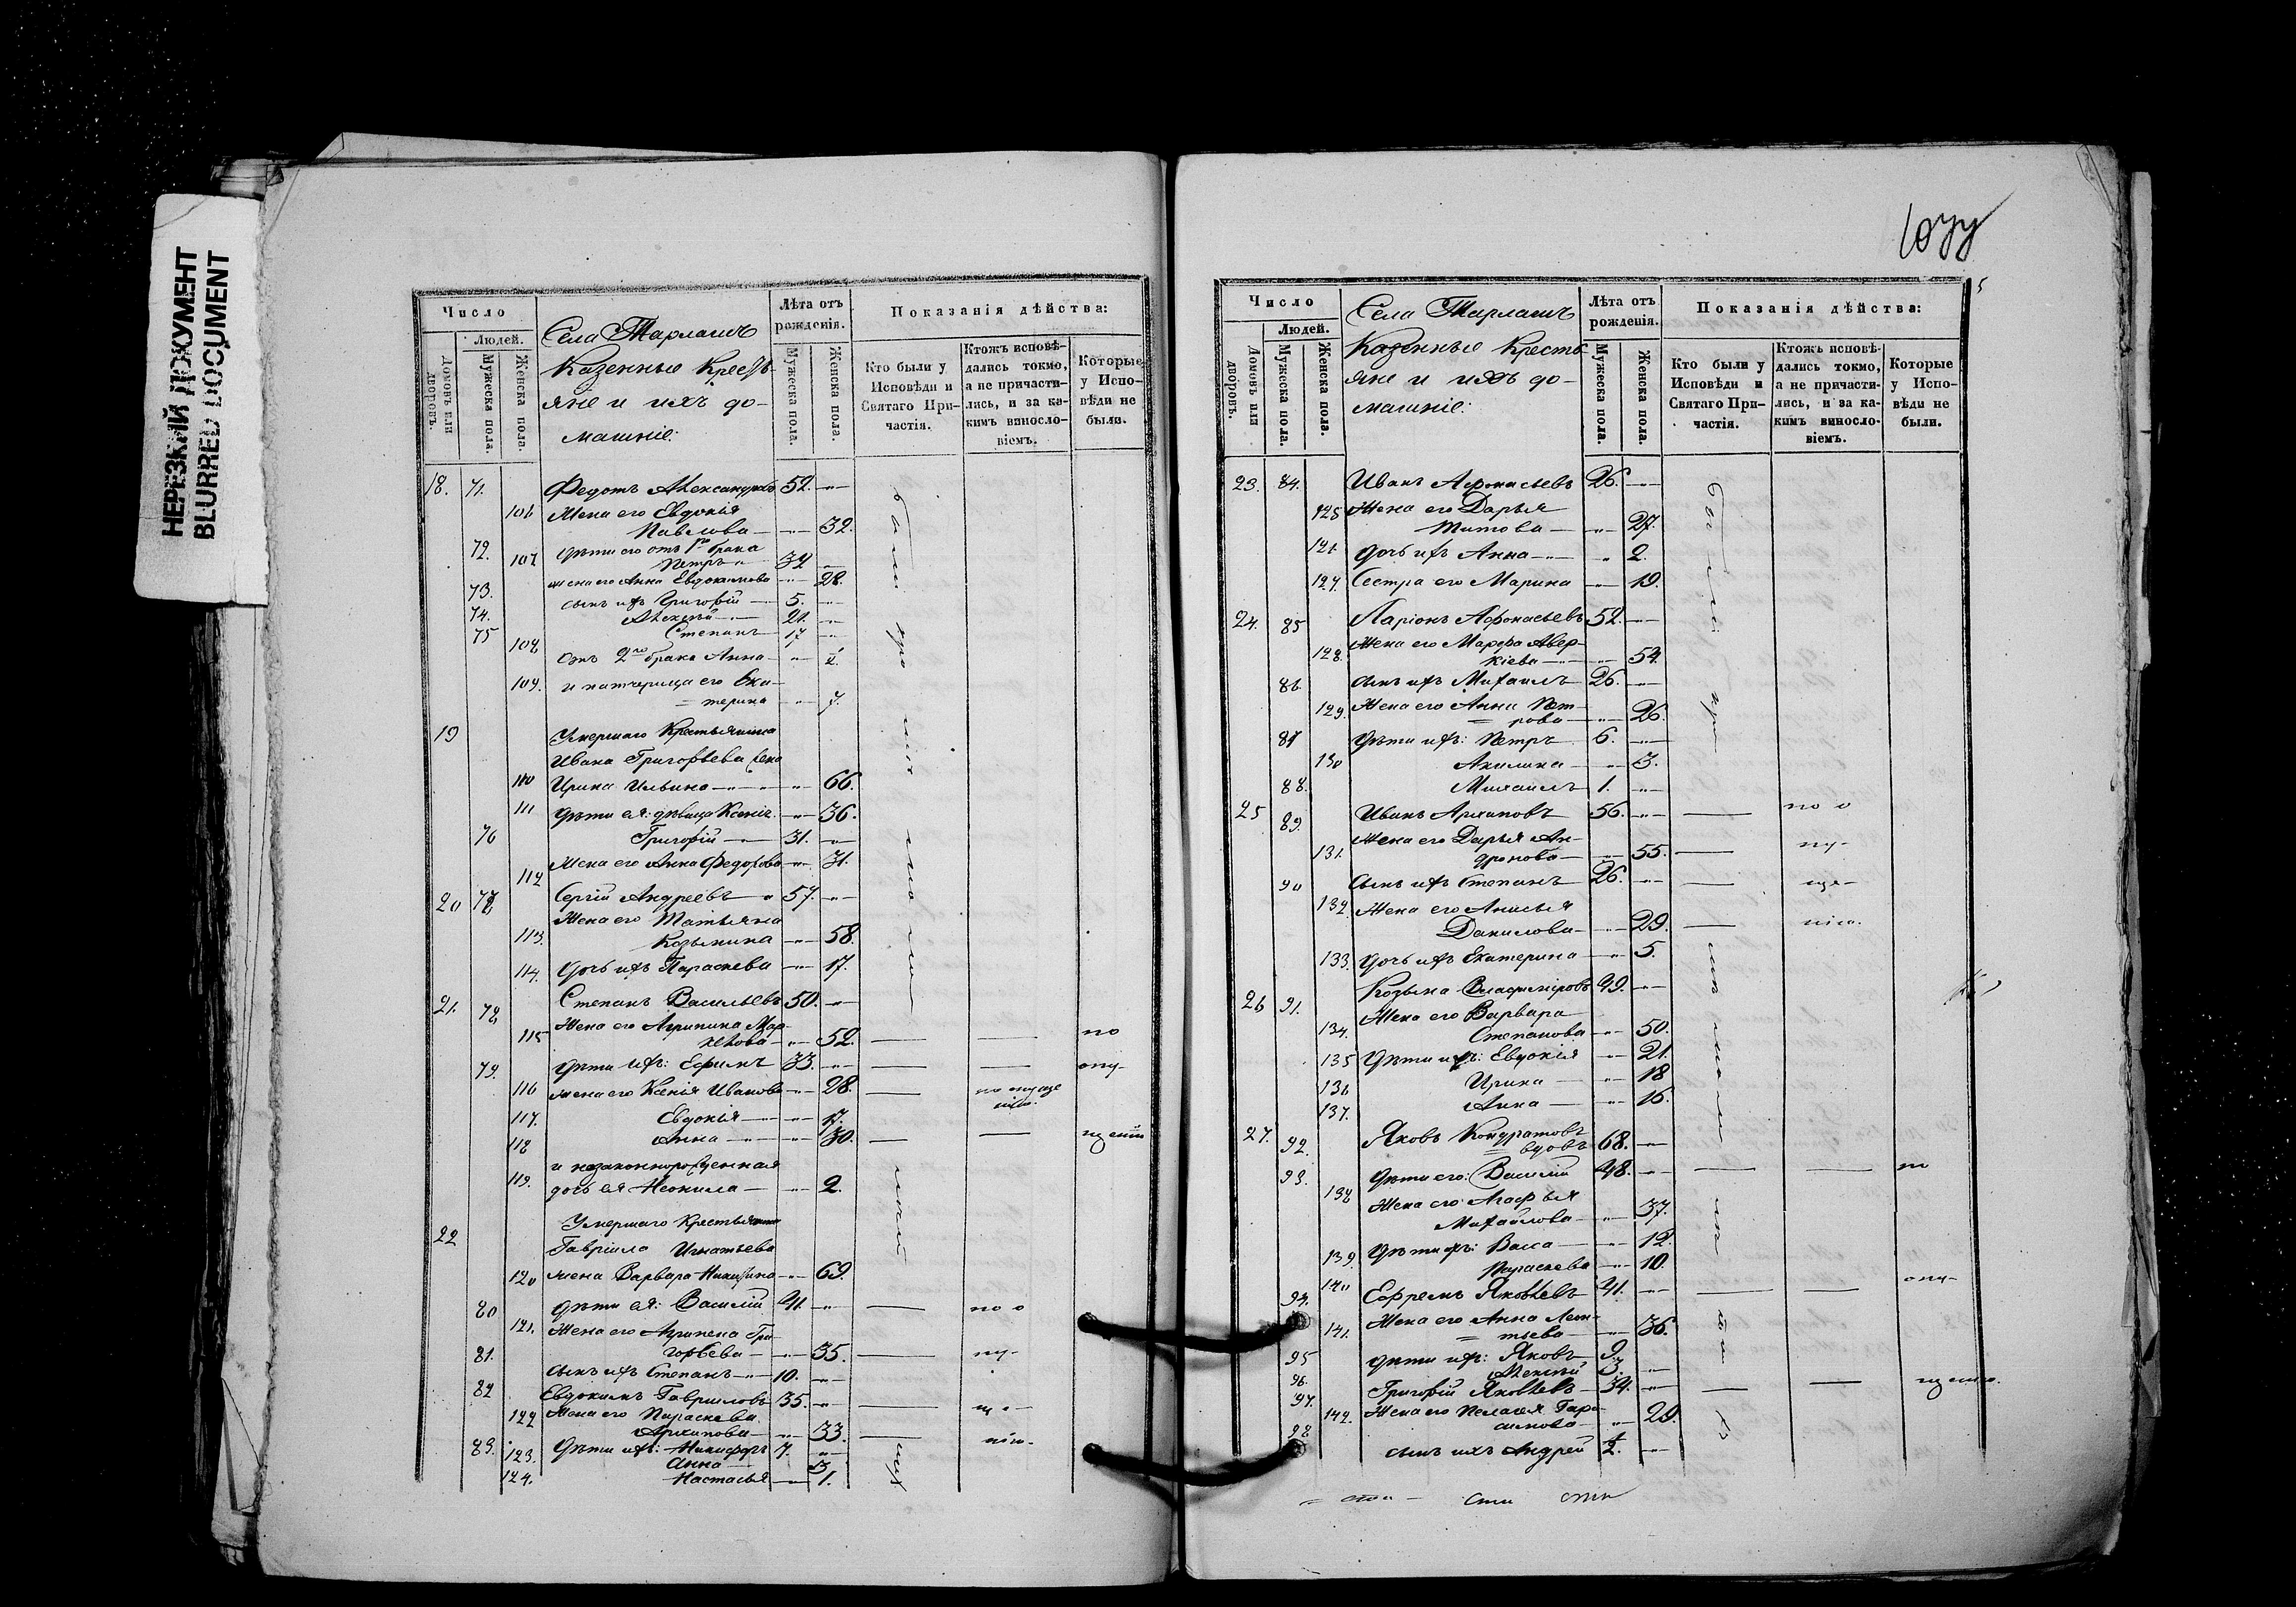 НЕРЕЗКИЙ ДОКУМЕНТ
BLURRED DOCUMENT
Число
Людей.
Домовъ или дворовъ.
Мужеска пола.
Женска пола.
Села Тарлаши
Казенные Кресть-
яне и ихъ до-
машніе:
Лѣта отъ рожденія.
Мужеска пола.
Женска пола.
Показанія дѣйства:
Кто были у Исповѣди и Святаго При-частія.
Ктожъ исповѣ-дались токмо, а не причасти-лись, и за ка-кимъ винословіемъ.
Которые у Испо-вѣди не были.
18. 71. Федотъ Александровъ 52.
106 Жена его Евдокія
Павлова 32.
72. 107 Дѣти его отъ 1го брака
Петръ 32
жена его Анна Евдокимова 28.
73. сынъ ихъ Григорій 5.
74. Алексѣй 21.
75 Степанъ 17
108 отъ 2го брака Анна
109. и патчерица его Ека-
терина 7.
19 Умершаго Крестьянина
Ивана Григорьева жена
110 Ирина Ильина 66.
111 Дѣти ея: дѣвица Ксенія 36.
76 Григорій 31.
112 Жена его Анна Федорова 31.
20 77 Сергій Андреевъ 57.
Жена его Татьяна
113. Козьмина 58.
114. Дочь ихъ Параскева 17.
21. 78 Степанъ Васильевъ 50.
115 Жена его Агрипина Мар-
келова 52. по
79. Дѣти ихъ: Ефимъ 33. опу-
116 жена его Ксенія Иванова 28. по опуще
нію.
117. Евдокія 17.
118 Анна 30.
и незаконнорожденная
119. дочь ея Неонила 2.
22 Умершаго Крестьянина
Гавріила Игнатьева
120 жена Варвара Никитина 69.
80 Дѣти ея: Василій 41. по о
121. Жена его Агрипена Гри-
горьева 35. пу-
81. сынъ ихъ Степанъ 10.
82 Евдокимъ Гавриловъ 35. ще-
122 Жена его Параскева
Архипова 33. нію.
83. 123. Дѣти ихъ: Никифоръ 7.
Анна 3
124. Настасья 1.
1077
Число
Людей.
Домовъ или дворовъ.
Мужеска пола.
Женска пола.
Села Тарлаши
Казенные Кресть-
яне и ихъ до-
машніе:
Лѣта отъ рожденія.
Мужеска пола.
Женска пола.
Показанія дѣйства:
Кто были у Исповѣди и Святаго При-частія.
Ктожъ исповѣ-дались токмо, а не причасти-лись, и за ка-кимъ винословіемъ.
Которые у Испо-вѣди не были.
23. 84. Иванъ Афонасьевъ 26.
125 Жена его Дарья
Титова 27.
126 Дочь ихъ Анна 2.
127. Сестра его Марина 19.
24. 85 Ларіонъ Афонасьевъ 52.
Жена его Марфа Авер-
128. кіева 54.
86. сынъ ихъ Михаилъ 26.
129. Жена его Анна Пет-
рова 26.
87 Дѣти ихъ: Петръ 6.
130 Акилина 3.
88. Михаилъ 1.
25 89. Иванъ Архиповъ 56. по о
Жена его Дарья Ан-
131. дронова 55. пу-
90 Сынъ ихъ Степанъ 26. ще-
132. Жена его Анисья
Данилова 29. нію.
133. Дочь ихъ Екатерина 5.
26 91. Козьма Владиміровъ 49.
Жена его Варвара
134. Степанова 50.
135 Дѣти ихъ: Евдокія 21.
136 Ирина 18
137. Анна 16.
27. 92. Яковъ Кондратовъ
вдовъ 68.
93. Дѣти его: Василій 48. по
138 Жена его Агафья
Михайлова 37.
139. Дѣти ихъ: Васса 12.
140 Параскева 10.
94. Ефремъ Яковлевъ 41. опу-
141. Жена его Анна Леон-
тьева 36.
95 Дѣти ихъ: Яковъ 9.
96. Алексѣй 3.
97. Григорій Яковлевъ 34. щенію.
142. Жена его Пелагея Гара-
симова 29
98 сынъ ихъ Андрей